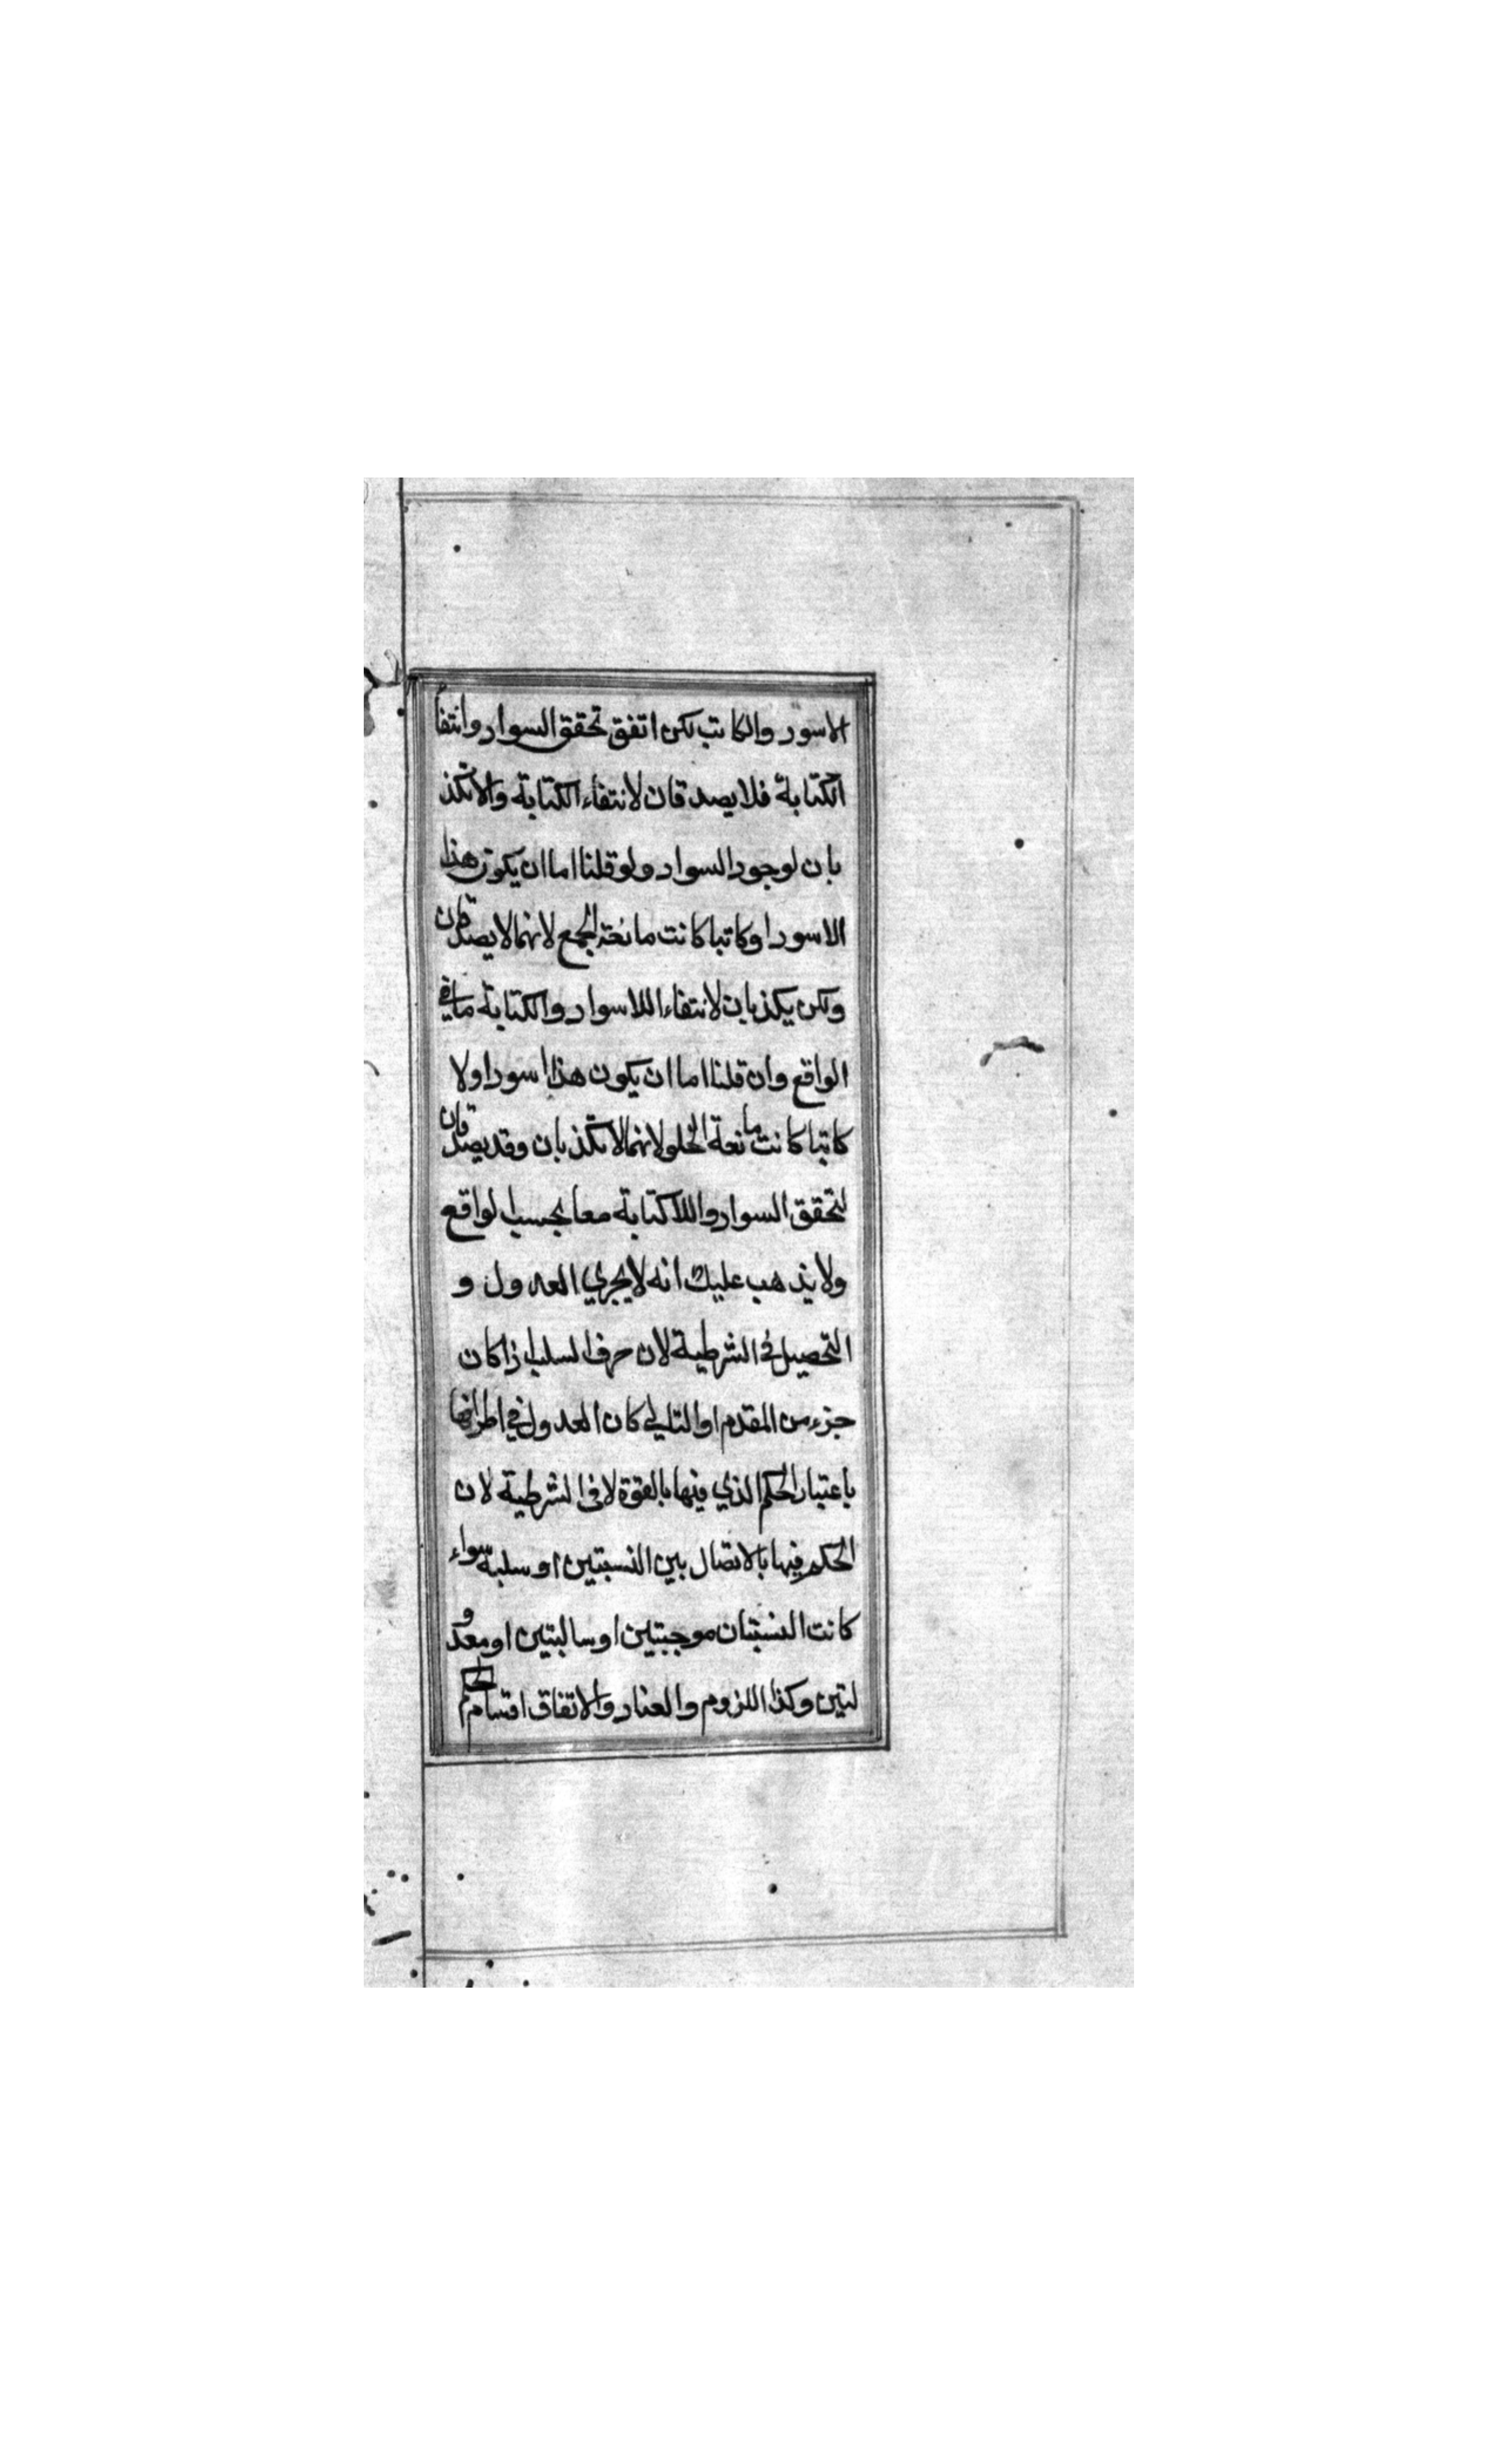 الاسود والكاتب لكن اتفق تحقق السواد وانتفا
الكتابة فلا يصدقان لانتفاء الكتابة والاتكذ
بان لوجود السواد ولو قلنا اما ان يكون هذا
الاسود او كاتبا كانت مانعة الجمع لانهما لا يصدقان
ولكن يكذبان لانتفاء اللاسواد والكتابة مافي
الواقع وان قلنا اما ان يكون هذا اسود اولا
كاتبا كانت مانعة الخلو لانهما لاتكذبان وقد يصدقان
لتحقق السواد واللاكتابة معا بحسب الواقع
ولا يذهب عليك انه لا يجري العدول و
التحصيل في الشرطية لان حرف السلب اذا كان
جزء من المقدم او التالي كان العدول في اطرافها
باعتبار الحكم الذي فيها بالقوة لا في الشرطية لان
الحكم فيها بالاتصال بين النسبتين او سلبه سواء
كانت النسبتان موجبتين او سالبتين او معدو
لتين وكذا اللزوم والعناد والاتفاق اقسام